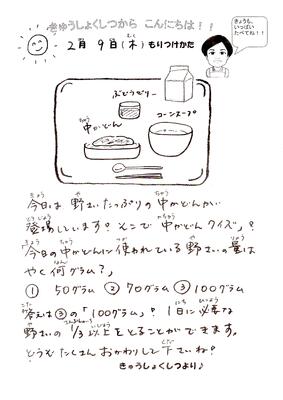 きゅうしょくしつから こんにちは!!
2月 9日(木) もりつけかた
きょうも、
いっぱい
たべてね!!
ぶどうゼリー
中かどん
コーンスープ
今日は 野さいたっぷりの 中かどんが
登場しています! そこで 中かどん クイズ♪?
「今日の 中かどんに 使われている 野さいの量は
やく何グラム?」
① 50グラム ② 70グラム ③ 100グラム
答えは ③の「100グラム」? 1日に 必要な
野さいの 1/3 以上をとることができます。
どうぞ たくさん おかわりして 下さいね?
きゅうしょくしつより♪